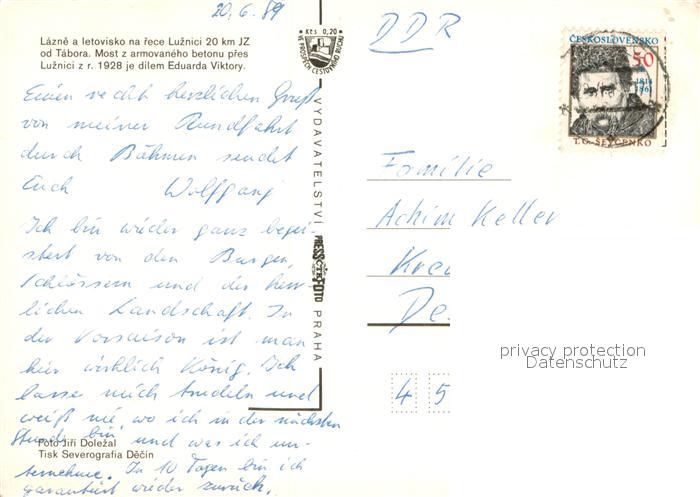 20.6.89
Lázně a letovisko na řece Lužnici 20 km JZ
od Tábora. Most z armovaného betonu přes
Lužnici z r. 1928 je dílem Eduarda Viktory.
Einen recht herzlichen Gruß
von meiner Rundfahrt
durch Böhmen sendet
Euch Wolfgang
Ich bin wieder ganz begei-
stert von den Burgen,
Schlössern und der herr-
lichen Landschaft. In
der Vorsaison ist man
hier wirklich König. Ich
lasse mich trudeln und
weiß nie, wo ich in der nächsten
Stunde bin und was ich un-
ternehme. In 10 Tagen bin ich
garantiert wieder zurück.
Foto Jiří Doležal
Tisk Severografia Děčín
Kčs 0,20
VE PROSPĚCH CESTOVNÍHO RUCHU
VYDAVATELSTVÍ
PRESSFOTO
PRAHA
DDR
ČESKOSLOVENSKO
50
T.G. ŠEVČENKO
Familie
Achim Keller
privacy protection
Datenschutz
4 5